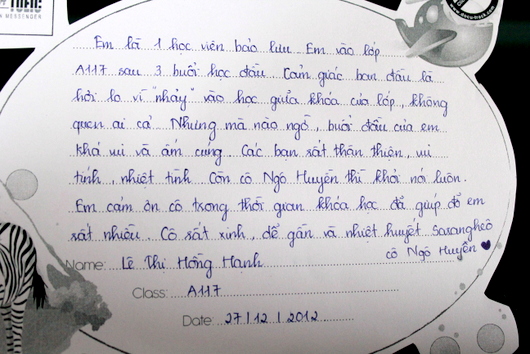 TOEIC
A MESSENGER
Em là 1 học viên bảo lưu. Em vào lớp
A117 sau 3 buổi học đầu. Cảm giác ban đầu là
hơi lo vì "nhảy" vào học giữa khóa của lớp, không
quen ai cả. Nhưng mà nào ngờ, buổi đầu của em
khá vui và ấm cúng. Các bạn rất thân thiện, vui
tính, nhiệt tình. Còn cô Ngô Huyền thì khỏi nói luôn.
Em cám ơn cô trong thời gian khóa học đã giúp đỡ em
rất nhiều. Cô rất xinh, dễ gần và nhiệt huyết. Saranghêô
cô Ngô Huyền ♥
Name: Lê Thị Hồng Hạnh
Class: A117
Date: 27/12/2012